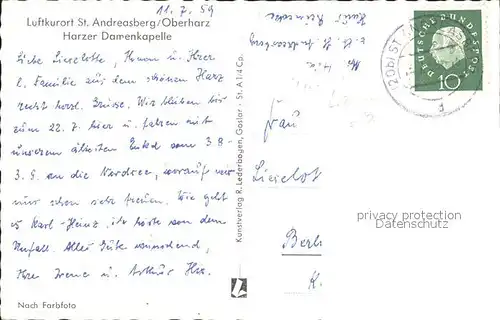 11.7.59
Luftkurort St. Andreasberg/Oberharz
Harzer Damenkapelle
Liebe Lieselotte, Ihnen u. Ihrer
l. Familie aus dem schönen Harz
recht herzl. Grüsse. Wir bleiben bis
zum 22.7. hier u. fahren mit
unserem ältesten Enkel vom 3.8-
3.9. an die Nordsee, worauf wir
uns schon sehr freuen. Wie geht
es Karl-Heinz, ich hörte von dem
Unfall. Alles Gute wünschend,
Ihre Irene u. Arthur
Nach Farbfoto
Kunstverlag R. Lederbogen, Goslar - St. A 14 Co.
St. Andreasberg
(20b) ST
DEUTSCHE BUNDESPOST
10
Frau
Lieselot
Berl
K.
privacy protection
Datenschutz